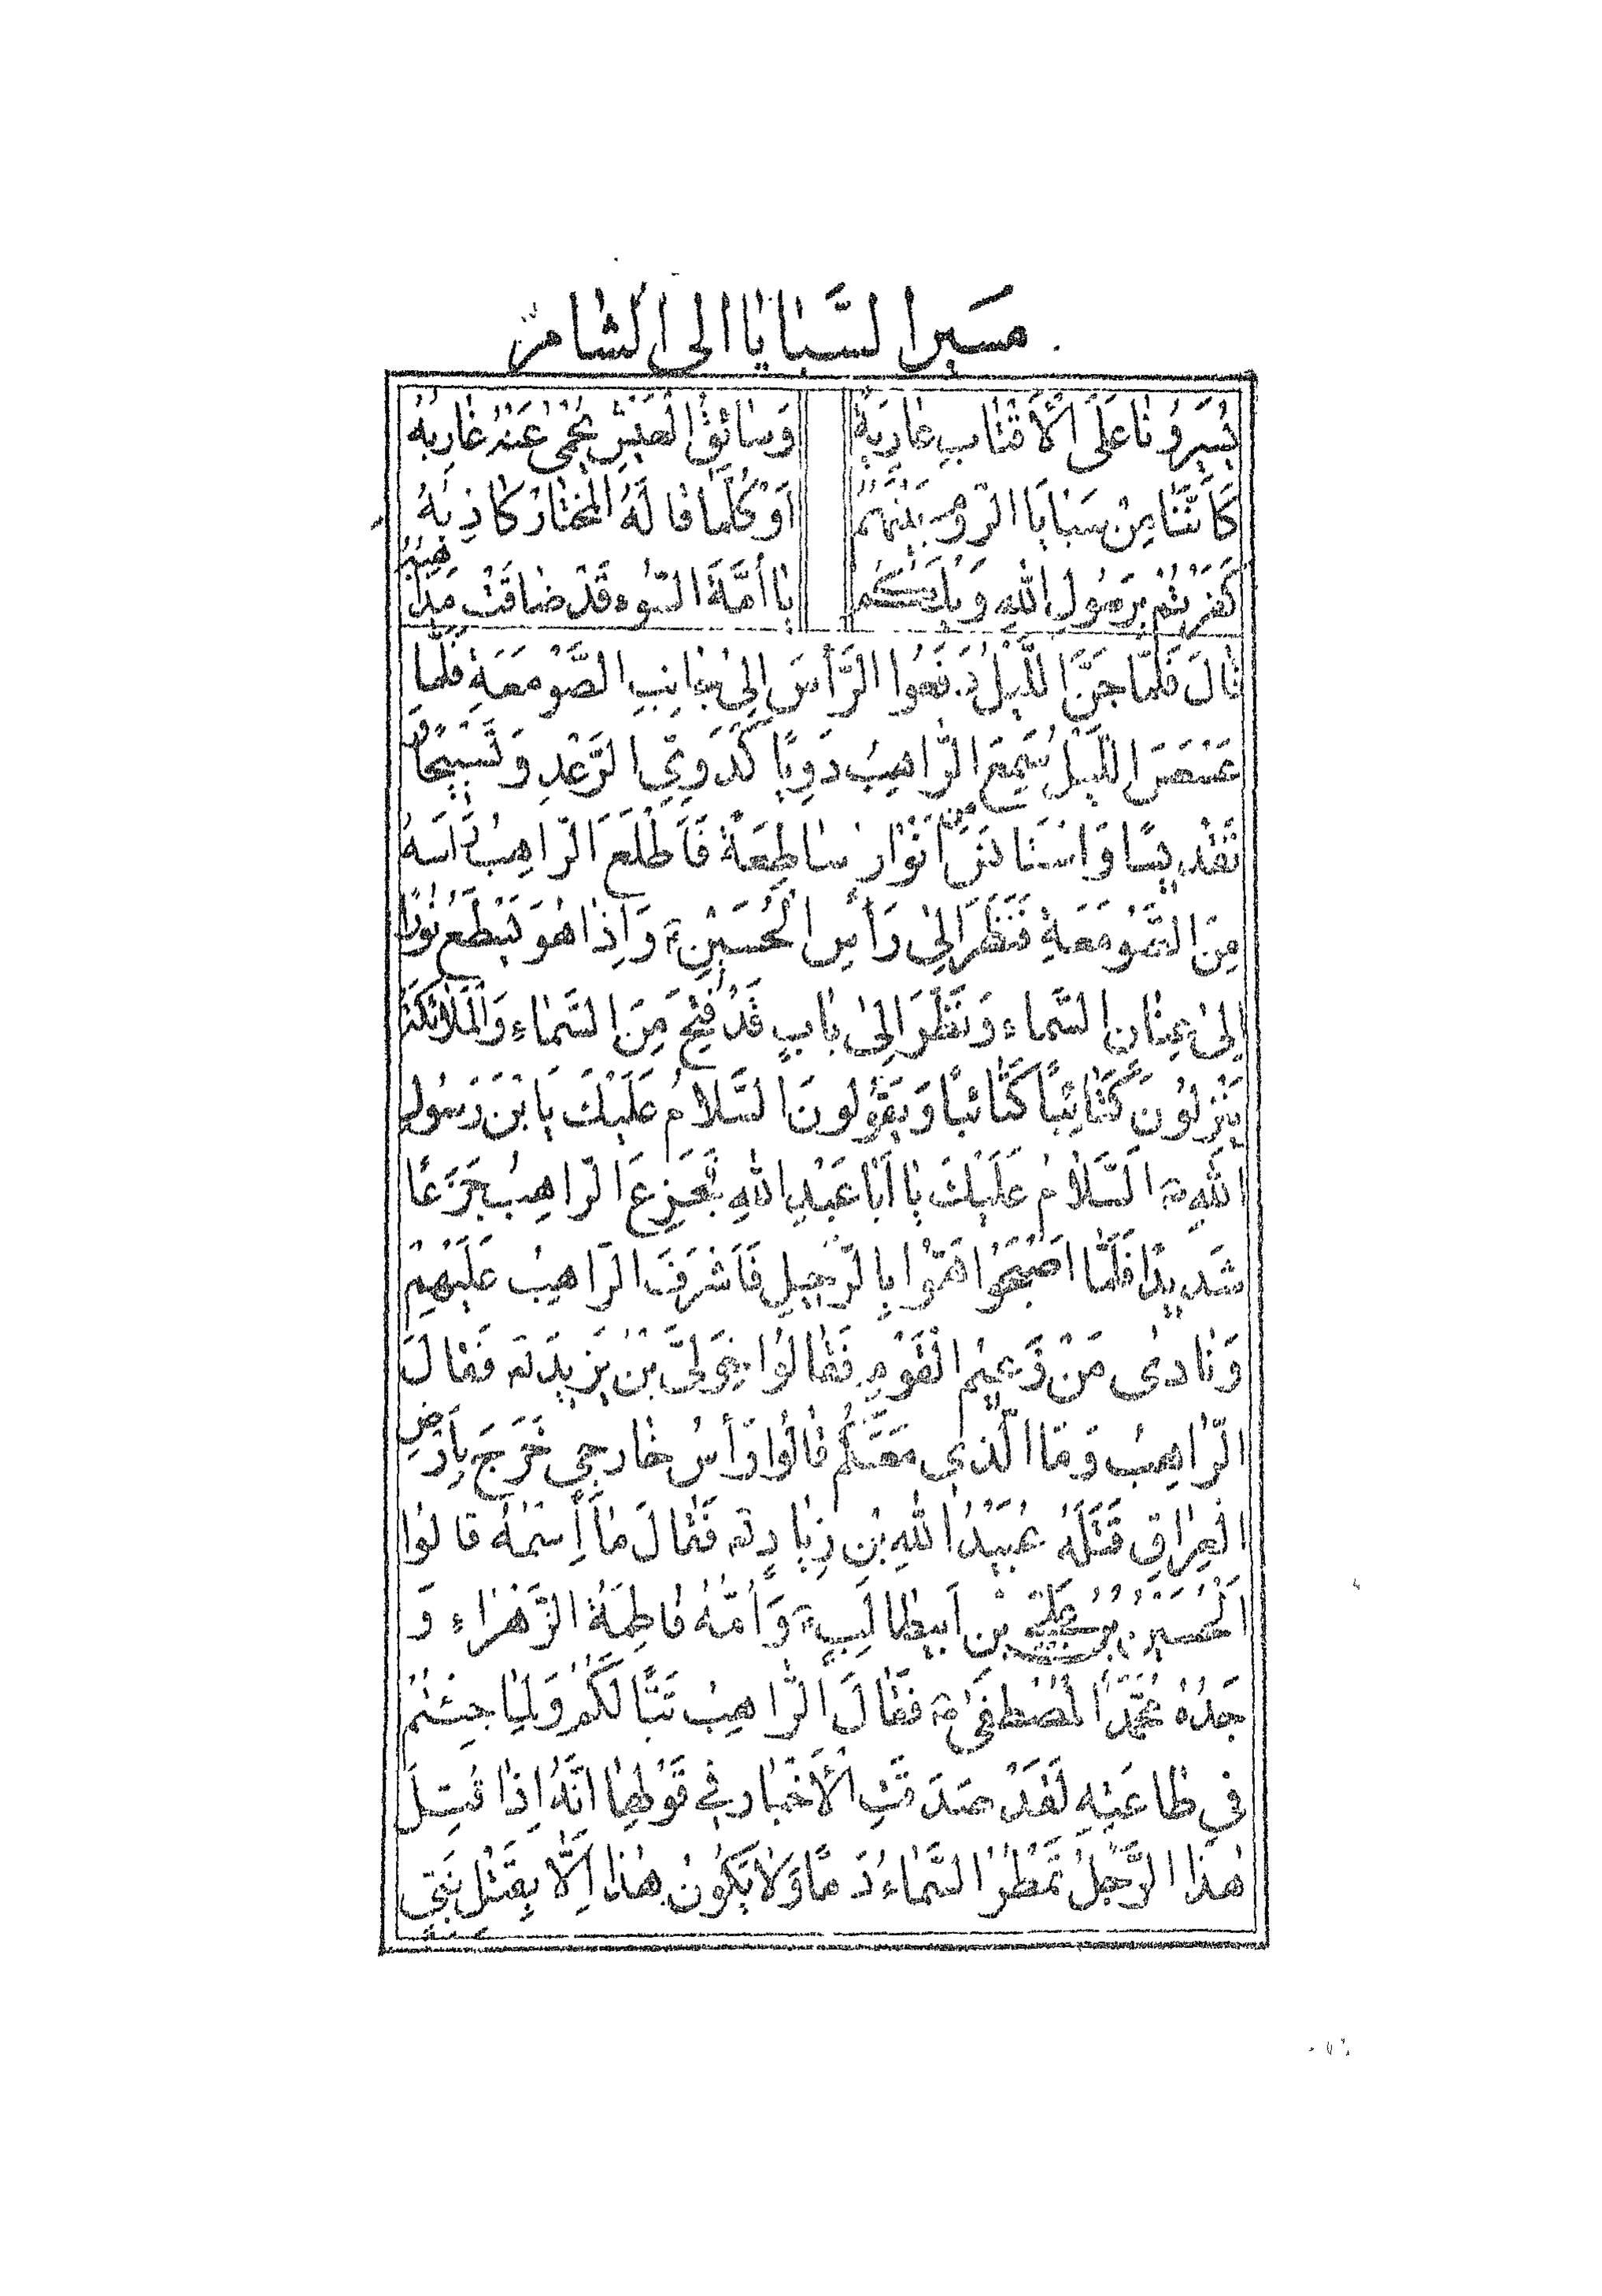 مَسِيرُ السَّبَايَا إِلَى الشَّامِ
يُسَيِّرُونَا عَلَى الْأَقْتَابِ عَارِيَةً وَسَائِقُ الْعِيسِ يَحْمِي عَنْهُ غَارِبُهُ
كَأَنَّنَا مِنْ سَبَايَا الرُّومِ بَيْنَهُمُ أَوْ كُلَّمَا قَالَهُ الْمُخْتَارُ كَاذِبُهُ
كَفَرْتُمْ بِرَسُولِ اللهِ وَيْلَكُمْ يَا أُمَّةَ السُّوءِ قَدْ ضَاقَتْ مَذَاهِبُهُ
قَالَ فَلَمَّا جَنَّ اللَّيْلُ دَفَعُوا الرَّأْسَ إِلَى جَانِبِ الصَّوْمَعَةِ فَلَمَّا
عَسْعَسَ اللَّيْلُ سَمِعَ الرَّاهِبُ دَوِيًّا كَدَوِيِّ الرَّعْدِ وَتَسْبِيحًا وَ
تَقْدِيسًا وَاسْتَأْنَسَ مِنْ أَنْوَارٍ سَاطِعَةٍ فَأَطْلَعَ الرَّاهِبُ رَأْسَهُ
مِنَ الصَّوْمَعَةِ فَنَظَرَ إِلَى رَأْسِ الْحُسَيْنِ ع وَإِذَا هُوَ يَسْطَعُ نُورًا
إِلَى عِنَانِ السَّمَاءِ وَنَظَرَ إِلَى بَابٍ قَدْ فُتِحَ مِنَ السَّمَاءِ وَالْمَلَائِكَةُ
يَنْزِلُونَ كَتَائِبًا كَتَائِبًا وَيَقُولُونَ السَّلَامُ عَلَيْكَ يَا بْنَ رَسُولِ
اللهِ ص السَّلَامُ عَلَيْكَ يَا أَبَا عَبْدِ اللهِ فَجَزِعَ الرَّاهِبُ جَزَعًا
شَدِيدًا فَلَمَّا أَصْبَحُوا هَمُّوا بِالرَّحِيلِ فَأَشْرَفَ الرَّاهِبُ عَلَيْهِمْ
وَنَادَى مَنْ زَعِيمُ الْقَوْمِ فَقَالُوا خَوْلِيُّ بْنُ يَزِيدَ لع فَقَالَ
الرَّاهِبُ وَمَا الَّذِي مَعَكُمْ قَالُوا رَأْسُ خَارِجِي خَرَجَ بِأَرْضِ
الْعِرَاقِ قَتَلَهُ عُبَيْدُ اللهِ بْنُ زِيَادٍ لع فَقَالَ مَا إِسْمُهُ قَالُوا
الْحُسَيْنُ بْنُ عَلِيِّ بْنِ أَبِيطَالِبٍ ع وَأُمُّهُ فَاطِمَةُ الزَّهْرَاءُ وَ
جَدُّهُ مُحَمَّدٌ الْمُصْطَفَى ص فَقَالَ الرَّاهِبُ تَبًّا لَكُمْ وَلِمَا جِئْتُمْ
فِي طَاعَتِهِ لَقَدْ صَدَقَتِ الْأَخْبَارُ فِي قَوْلِهَا أَنَّهُ إِذَا قُتِلَ
هَذَا الرَّجُلُ تَمْطُرُ السَّمَاءُ دَمًا وَلَا يَكُونُ هَذَا إِلَّا بِقَتْلِ نَبِيٍّ